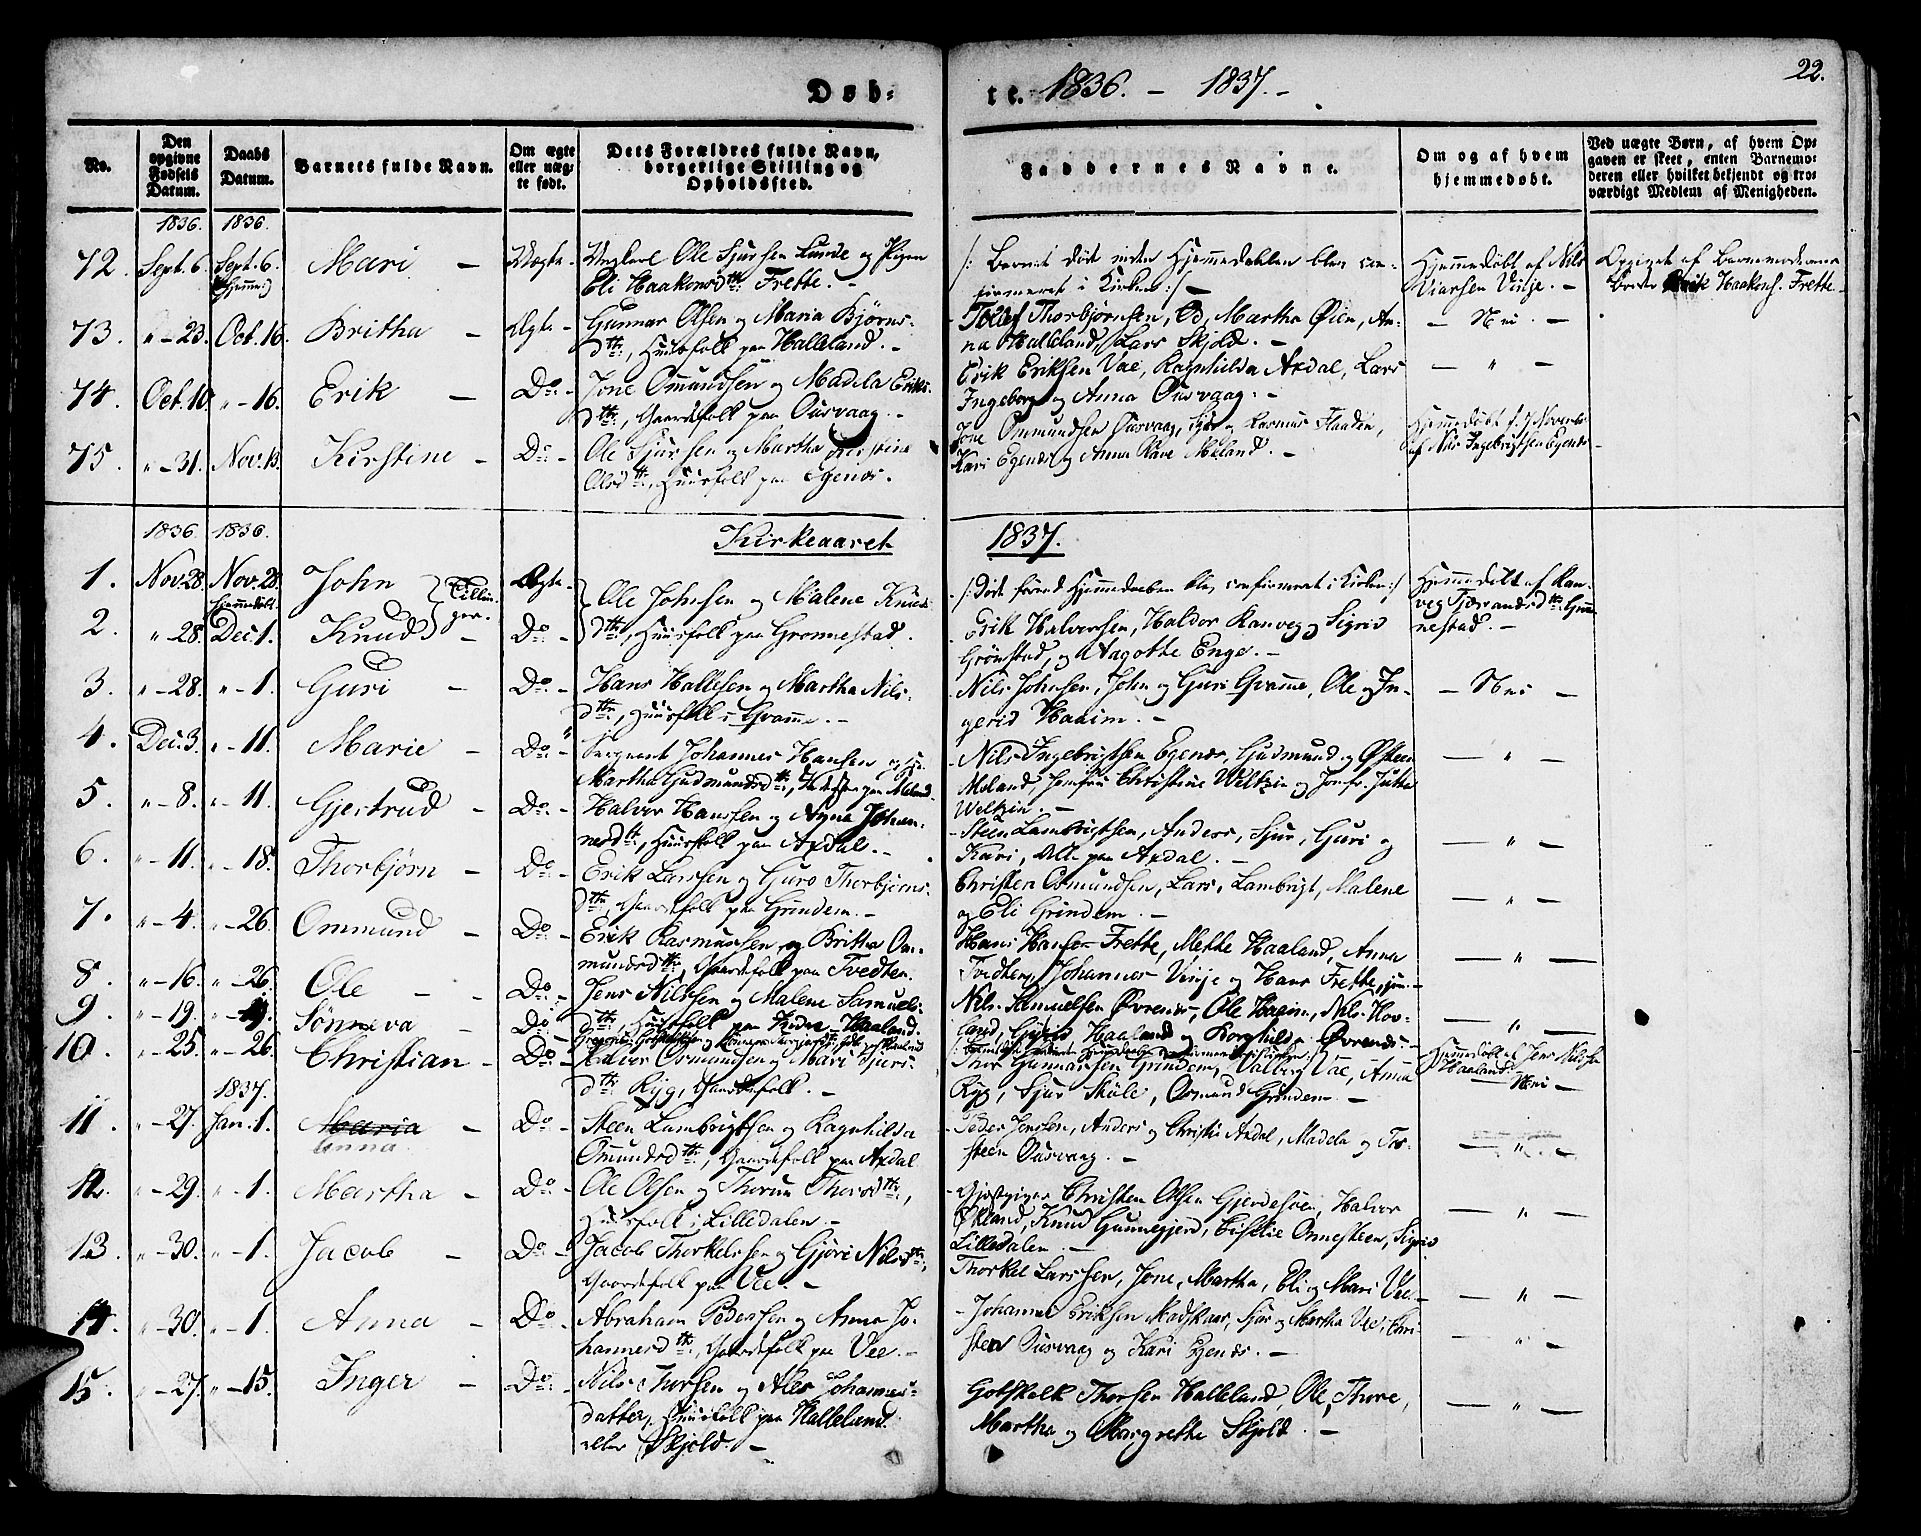 Døb-
te. 1836. - 1837. -
22.
No.
Den opgivne Fødsels Datum.
Daabs Datum.
Barnets fulde Navn.
Om ægte eller uægte født.
Dets Forældres fulde Navn, borgerlige Stilling og Opholdssted.
Faddernes Navne.
Om og af hvem hjemmedøbt.
Ved uægte Børn, af hvem Opgaven er skeet, enten Barnemoderen eller hvilket bekjendt og troværdigt Medlem af Menigheden.
1836. 1836.
72. Sept. 6. Sept. 6. Mari - Uægte. Ungkarl Ole Sjursen Lunde og Pigen
Eli Haakonsdtr. Frette. -
/: Barnet døde inden Hjemmedaaben blev con-
firmeret i Kirken :/ -
Hjemmedøbt af Nils
Viarsen Vilje. -
Opgivet af Barnemoderens
Broder Erik Haakons. Frette.
73. " - 23. Oct. 16. Britha - Ægte - Gunnar Olsen og Maria Bjørns-
dtr., Huusfolk paa Halleland. -
Tollef Thorbjørnsen, Od, Martha Øien, An-
na Halleland, Lars Skjold. -
- Nei. -
74. Oct. 10. " - 16. Erik - Do - Jone Omundsen og Madela Eriks-
dtr., Gaardfolk paa Ousvaag. -
Erik Eriksen Vae, Ragnhilda Axdal, Lars
Ingeborg og Anna Ousvaag. -
- " -
75. " - 31. Nov. 13. Kirstine - Do - Ole Sjursen og Martha Kirstine
Olsdtr., Huusfolk paa Egenes.
Jone Ommundsen Ousvaag, Sjur og Rasmus Flaaden,
Kari Egenes og Anna Meland. -
Hjemmedøbt d. 7 Novembr
af Nils Ingebrigtsen Egenes -
1836. 1836.
Kirkeaaret 1837.
1. Nov. 28. Nov. 28. John Tvillin- Ægte -
Hjemmedøbt
Ole Johnsen og Malene Knuds
/: Døde førend Hjemmedaaben blev confirmeret i Kirken :/
Hjemmedøbt af Ran-
veg Tjerandsdtr. Grøn-
nestad. -
2. " 28. Dec. 1. Knud ger. - Do -
dtr., Huusfolk paa Grønnestad.
Erik Halversen, Haldor Ranveg og Sigrid
Grønstad, og Aagothe Enge. -
3. " - 28. " - 1. Guri - Do - Hans Hallesen og Martha Nils-
dtr., Huusfolk i Qvamme. -
Nils Johnsen, John og Guri Qvamme, Ole og In-
gerid Haaim. -
- Nei -
4. Dec. 3. " - 11. Marie - Do - Sergeant Johannes Hansen og
Martha Gudmundsdtr., paa Meland.
Nils Ingebrigtsen Egenes, Gudmund og Østen
Meland, Jomfru Christine Weltzin og Jomfr. Jutta
Weltzin. -
- " -
5. " - 8. " - 11. Gjertrud - Do - Halvor Hansen og Anna Johan-
nesdtr., Huusfolk paa Axdal. -
Steen Lambrigtsen, Anders, Sjur, Guri og
Kari, Alle paa Axdal. -
- " -
6. " - 11. " - 18. Thorbjørn - Do - Erik Larsen og Guro Thorbjørns-
dtr., Gaardfolk paa Grindem. -
Christen Osmundsen, Lars, Lambrigt, Malene
og Eli Grindem. -
- " -
7. " - 4. " - 26. Ommund - Do - Erik Rasmusen og Britha Om-
mundsdtr., Gaardfolk paa Tvedten.
Hans Hansen Frette, Methe Haaland, Anna
Tvedten, Johannes Vinje og Hans Frette, jun. -
- " -
8. " - 16. " - 26. Ole - - Do - Jens Nilsen og Malene Samuels-
dtr., Huusfolk paa Haaland.
Nils Samuelsen Øvrenes, Ole Haaim, Nils Hov-
land, Haaland og Borghilda Øvrenes. -
- " -
9. " - 19. " - 19. Sønneva - Do
Hjemmedøbt af Jens Nilsen
Haaland.
10. " - 25. " - 26. Christian - Do - Halvor Osmundsen og Mari Sjurs-
dtr. Ryg, Gaardfolk. -
Thor Gunnarsen Grindem, Valborg Vae, Anna
Ryg, Sjur Skule, Osmund Grindem. -
- Nei -
1837.
11. " - 27. Jan. 1. Maria - Do - Steen Lambrigtsen og Ragnhilda
Anna.
Omundsdtr., Gaardfolk paa Axdal
Peder Jensen, Anders og Christi Axdal, Madela og Tor-
steen Ousvaag. -
- " -
12. " - 29. " - 1. Martha - Do - Ole Olsen og Thorun Thorsdtr.,
Huusfolk i Lilledalen. -
Gjestgiver Christen Olsen Gjerdesøen, Halvor
Økland, Knud Gunnegjerd, Onnesteen, Sigrid
Lilledalen. -
- " -
13. " - 30. " - 1. Jacob - Do - Jacob Thorkelsen og Gjøri Nilsdtr.,
Gaardfolk paa Vee. -
Thorkel Larsen, Jone, Martha, Eli og Mari Vee. -
- " -
14. " - 30. " - 1. Anna - Do - Abraham Pedersen og Anna Jo-
hannesdtr., Gaardfolk paa Vee. -
- Johannes Eriksen Madskaar, Sjur og Martha Vee, Chri-
sten Ousvaag og Kari Egenes. -
- " -
15. " - 27. " - 15. Inger - Do - Nils Thorsen og Ales Johannes-
datter, Huusfolk paa Halleland
eller Skjold. -
Gotskalk Thorsen Halleland, Ole, Thore,
Martha og Margrethe Skjold. -
- " -